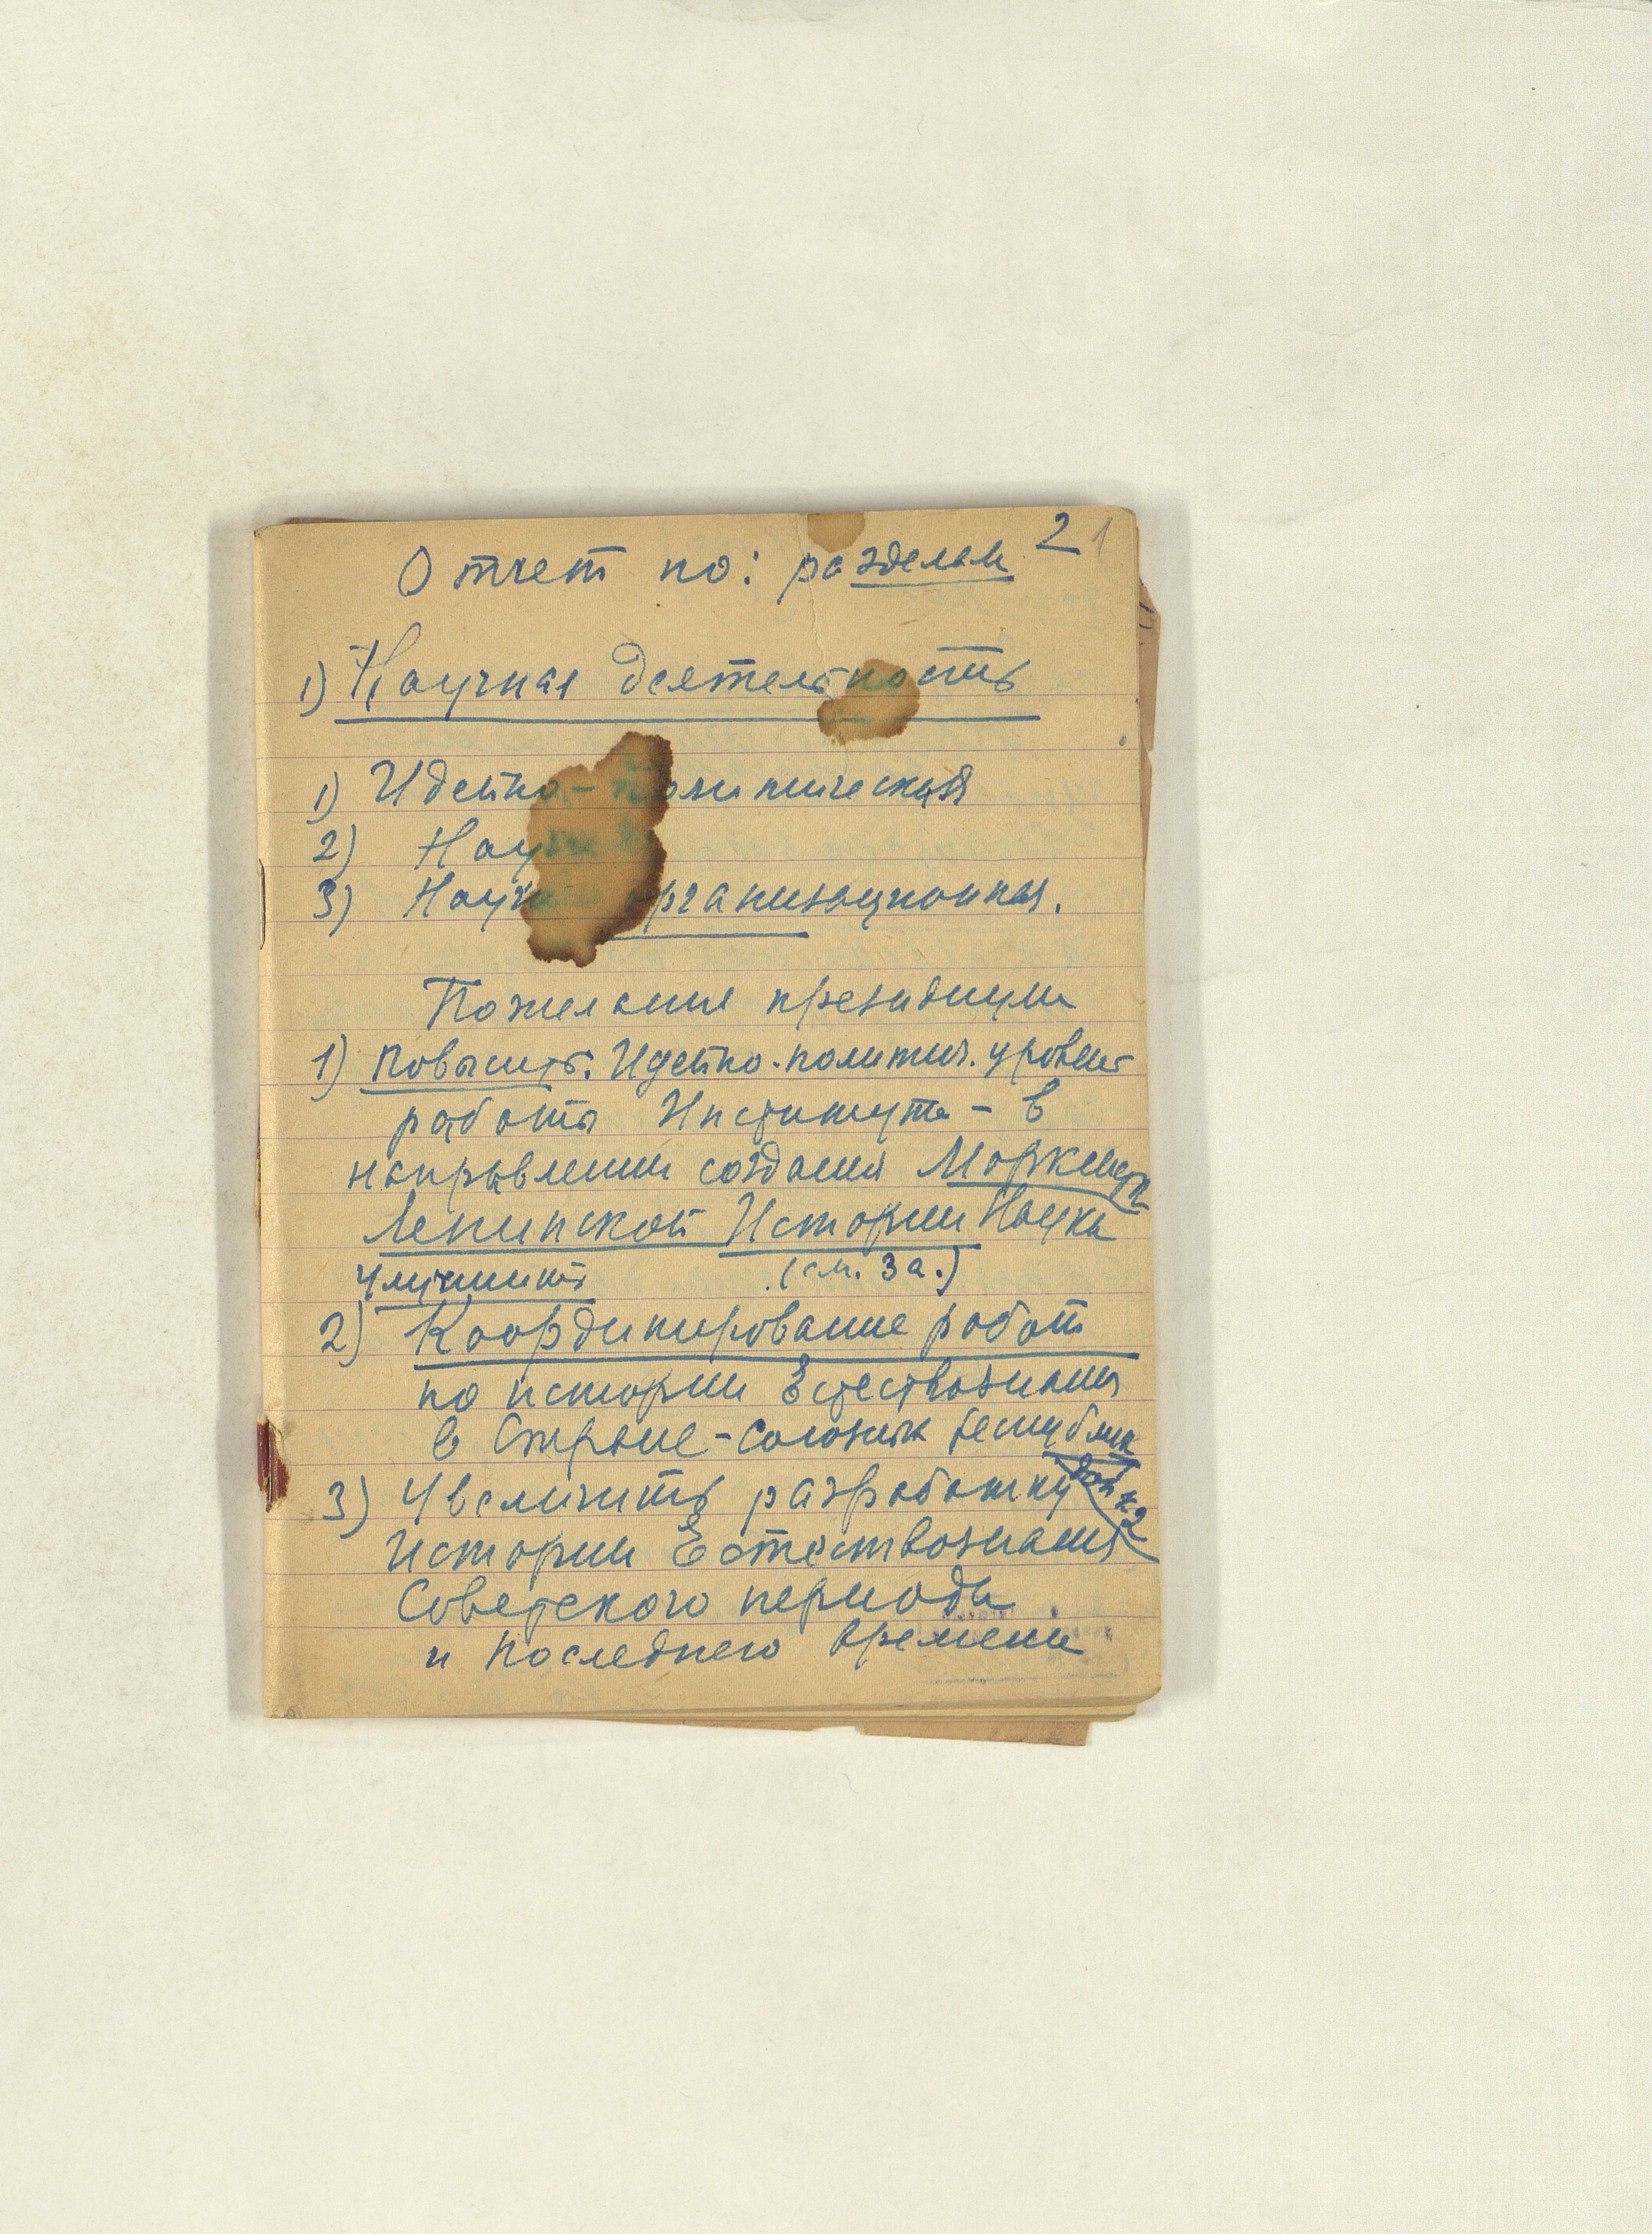 2 1
Отчет по: разделам
1) Научная деятельность
1) Идейно-политическая
2) Науч
3) Научн организационная.
Пожелания президиума
1) Повысить: Идейно-политич. уровень
работы Института - в
направлении создания Марксист
Ленинской Истории Наука
Улучшить (см. 3а.)
2) Координирование работ
по истории Естествознания
в Стране - Союзных республик
доп к 2
3) Увеличить разработку
Истории Естествознания
Советского периода
и последнего времени